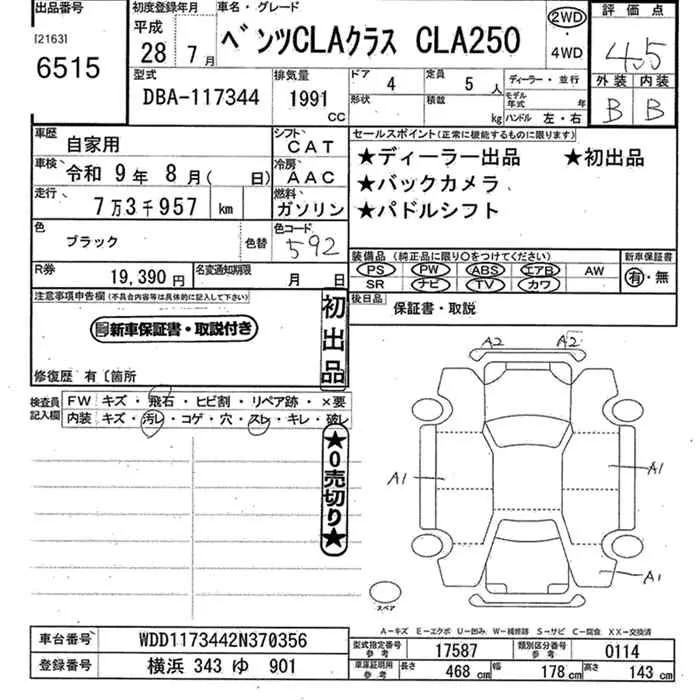 出品番号 初度登録年月 車名・グレード 2WD 評価点
[2163] 平成 28年 7月 ベンツCLAクラス CLA250 4WD 4.5
6515 型式 排気量 ドア 4 定員 5人 ディーラー・並行 外装 内装
DBA-117344 1991 CC 形状 積載 kg モデル年式 年 ハンドル 左・右 B B
車歴 自家用 シフト CAT セールスポイント(正常に機能するものに限ります)
車検 令和 9年 8月( 日) 冷房 AAC ★ディーラー出品 ★初出品
走行 7万3千957 km 燃料 ガソリン ★バックカメラ
★パドルシフト
色 ブラック 色替 色コード 592 装備品(純正品に限り〇をつけてください) 新車保証書
PS PW ABS エアB AW 有・無
R券 19,390円 名変通知期限 月 日 SR ナビ TV カワ
注意事項申告欄(不具合内容等は具体的に記入して下さい) 初出品 後日品 保証書・取説
新車保証書・取説付き
修復歴 有〔箇所
検査員記入欄 FW キズ・飛石・ヒビ割・リペア跡・×要
内装 キズ・汚レ・コゲ・穴・スレ・キレ・破レ
★0売切り★
A2 A2
A1 A1
A1
スペア
A-キズ E-エクボ U-凹み W-補修跡 S-サビ C-腐食 XX-交換済
車台番号 WDD1173442N370356 型式指定番号 参考 17587 類別区分番号 参考 0114
登録番号 横浜 343 ゆ 901 車庫証明用 参考 長さ 468 cm 幅 178 cm 高さ 143 cm